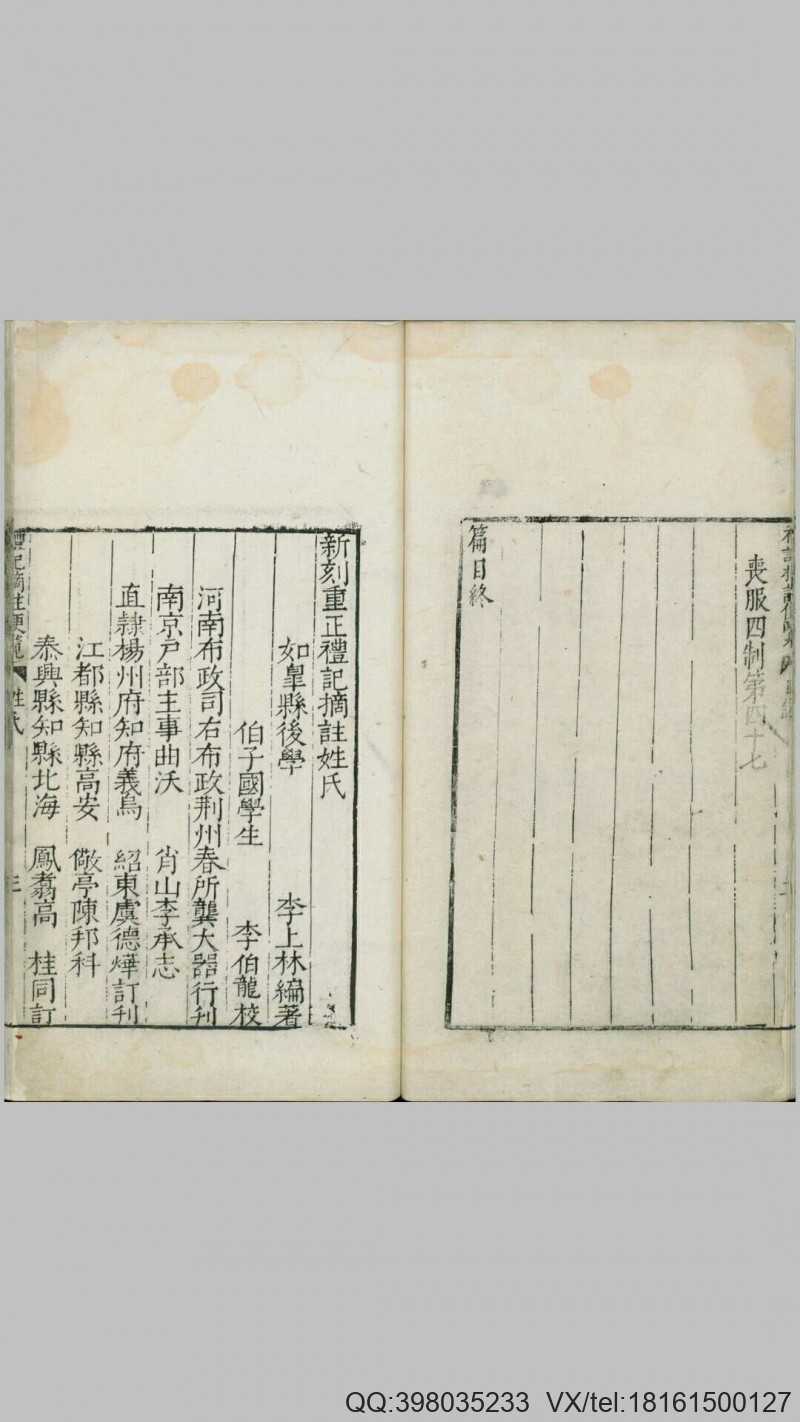 喪服四制第四十七
篇目終
新刻重正禮記摘註姓氏
如臯縣後學 李上林編著
伯子國學生 李伯龍校
河南布政司右布政荆州春所龔大器行刋
南京戸部主事曲沃 肖山李承志
直隷楊州府知府義烏 紹東虞德燁訂刋
江都縣知縣高安 儆亭陳邦科
泰興縣知縣北海 鳳翥高 桂同訂
禮記摘註便覽 姓氏 三
QQ:398035233 VX/tel:18161500127